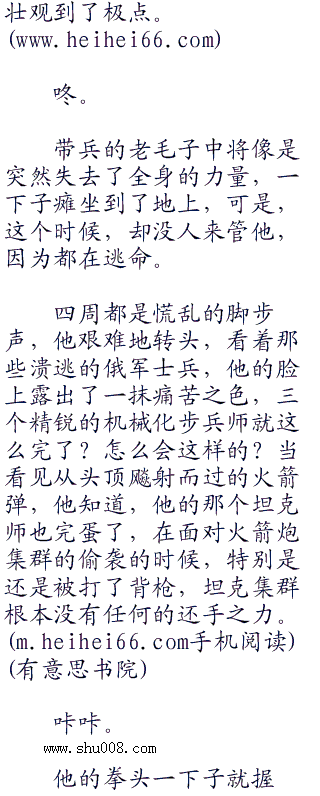 壮观到了极点。
(www.heihei66.com)
咚。
带兵的老毛子中将像是
突然失去了全身的力量，一
下子瘫坐到了地上，可是，
这个时候，却没人来管他，
因为都在逃命。
四周都是慌乱的脚步
声，他艰难地转头，看着那
些溃逃的俄军士兵，他的脸
上露出了一抹痛苦之色，三
个精锐的机械化步兵师就这
么完了？怎么会这样的？当
看见从头顶飚射而过的火箭
弹，他知道，他的那个坦克
师也完蛋了，在面对火箭炮
集群的偷袭的时候，特别是
还是被打了背枪，坦克集群
根本没有任何的还手之力。
(m.heihei66.com手机阅读)
(有意思书院)
咔咔。
www.shu008.com
他的拳头一下子就握